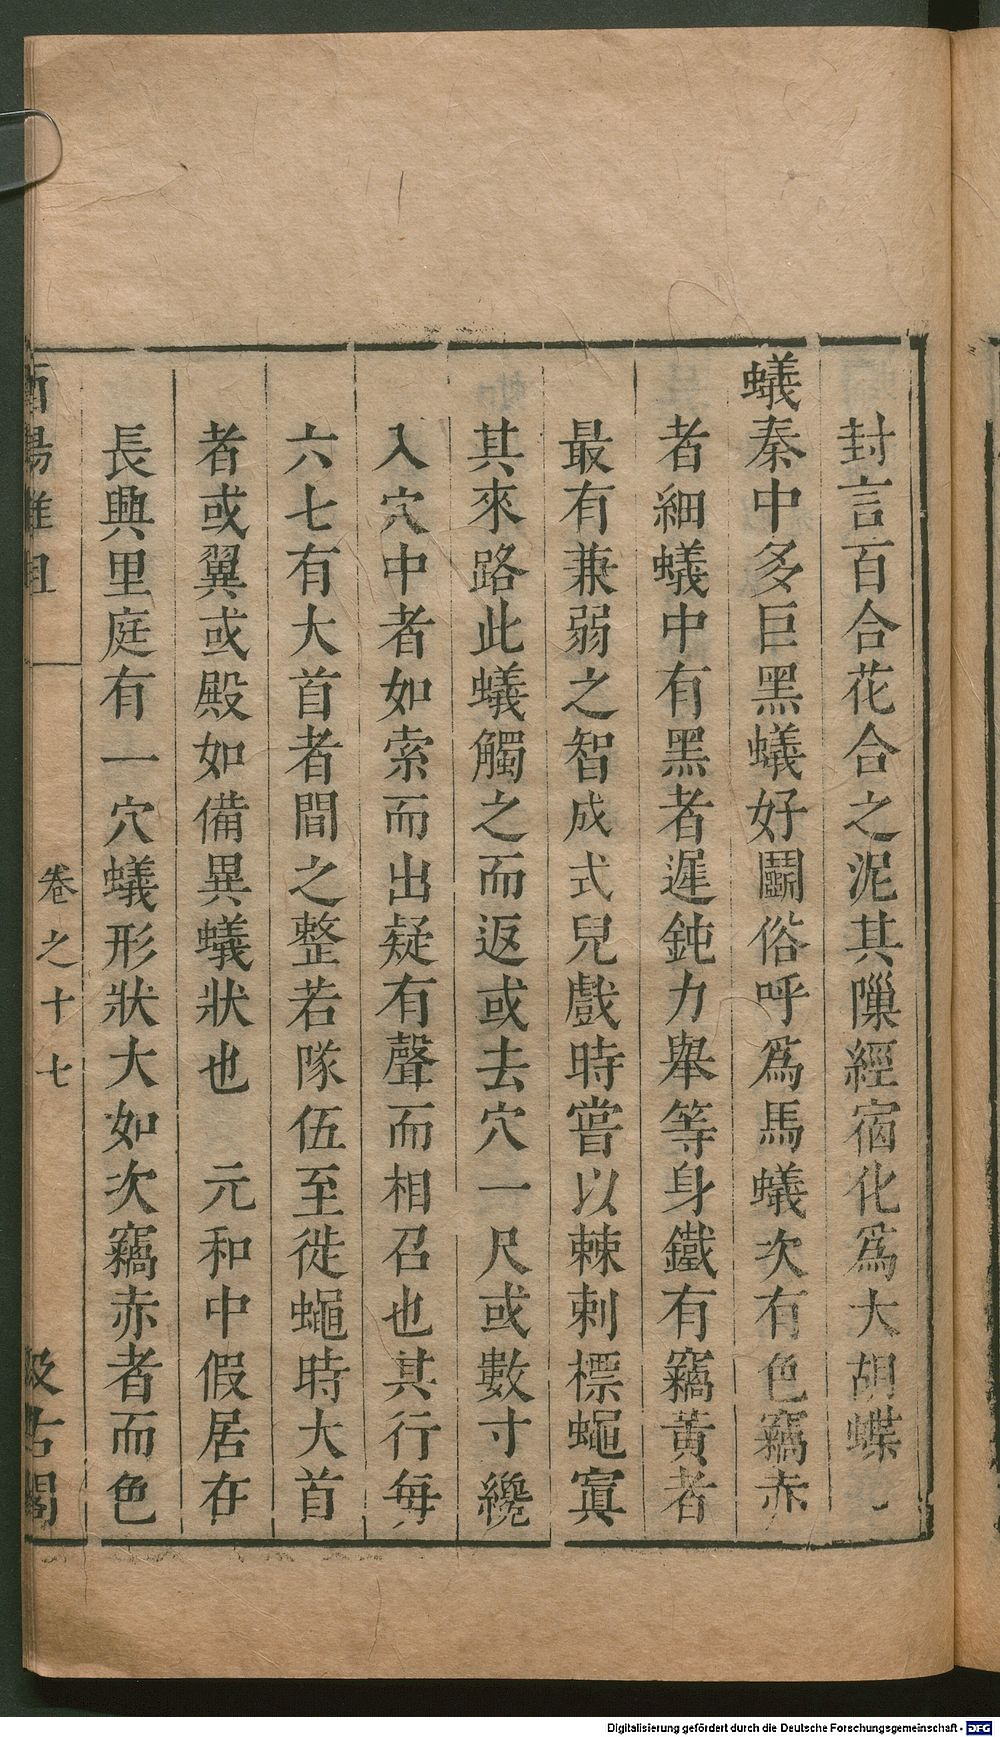 封言百合花合之泥其隟經宿化爲大胡蝶
蟻秦中多巨黑蟻好鬬俗呼爲馬蟻次有色竊赤
者細蟻中有黑者遲鈍力舉等身鐵有竊黃者
最有兼弱之智成式兒戲時嘗以棘刺標蠅寘
其來路此蟻觸之而返或去穴一尺或數寸纔
入穴中者如索而出疑有聲而相召也其行每
六七有大首者間之整若隊伍至徙蠅時大首
者或翼或殿如備異蟻狀也　元和中假居在
長興里庭有一穴蟻形狀大如次竊赤者而色
酉陽雜俎
卷之十七
汲古閣
Digitalisierung gefördert durch die Deutsche Forschungsgemeinschaft - DFG